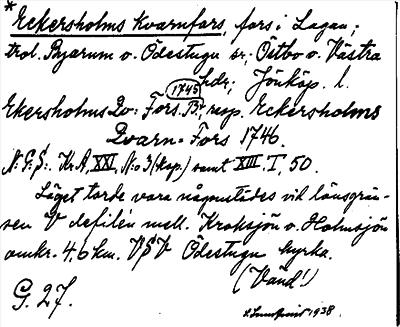 * Eckersholms Kvarnfors, fors i Lagan;
trol. Byarum o. Ödestugu sr; Östbo o. Västra
hdr; Jönköp. l.
Ekersholms Qv: Fors. 1745 Br, resp. Eckersholms
Qvarn=Fors 1746.
N: G: S:. Kr. A, XXI, N:o 3 (kop.) samt XIII. I, 50.
Läget torde vara någonstädes vid länsgrän-
sen V defilén mell. Kroksjön o. Holmsjön
omkr. 4,6 km. VSV Ödestugu kyrka.
(Vänd!)
G. 27.
1938.